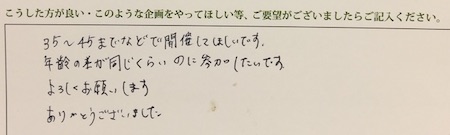 こうした方が良い・このような企画をやってほしい等、ご要望がございましたらご記入ください。
35〜45までなどで開催してほしいです。
年齢の差が同じくらいのに参加したいです
よろしくお願いします
ありがとうございました